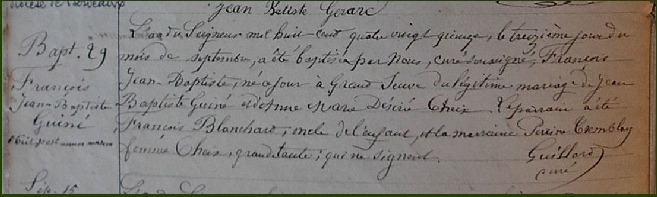 Jean Batiste
L'an du Seigneur mil huit cent quatre vingt quinze, le treizième jour du
Bapt. 29
mois de septembre, a été baptisé par Nous, curé soussigné, François
François
Jean-Baptiste, né ce jour à Grand Jeuve du légitime mariage de Jean
Jean-Baptiste
Baptiste Guiné et de Anne Marie Désiré Chaix. Le parrain a été
Guiné
François Blanchard, oncle de l'enfant, et la marraine Tremblay
femme Chaix, grand'tante; qui ne signent. Guillard
curé
Sép. 15